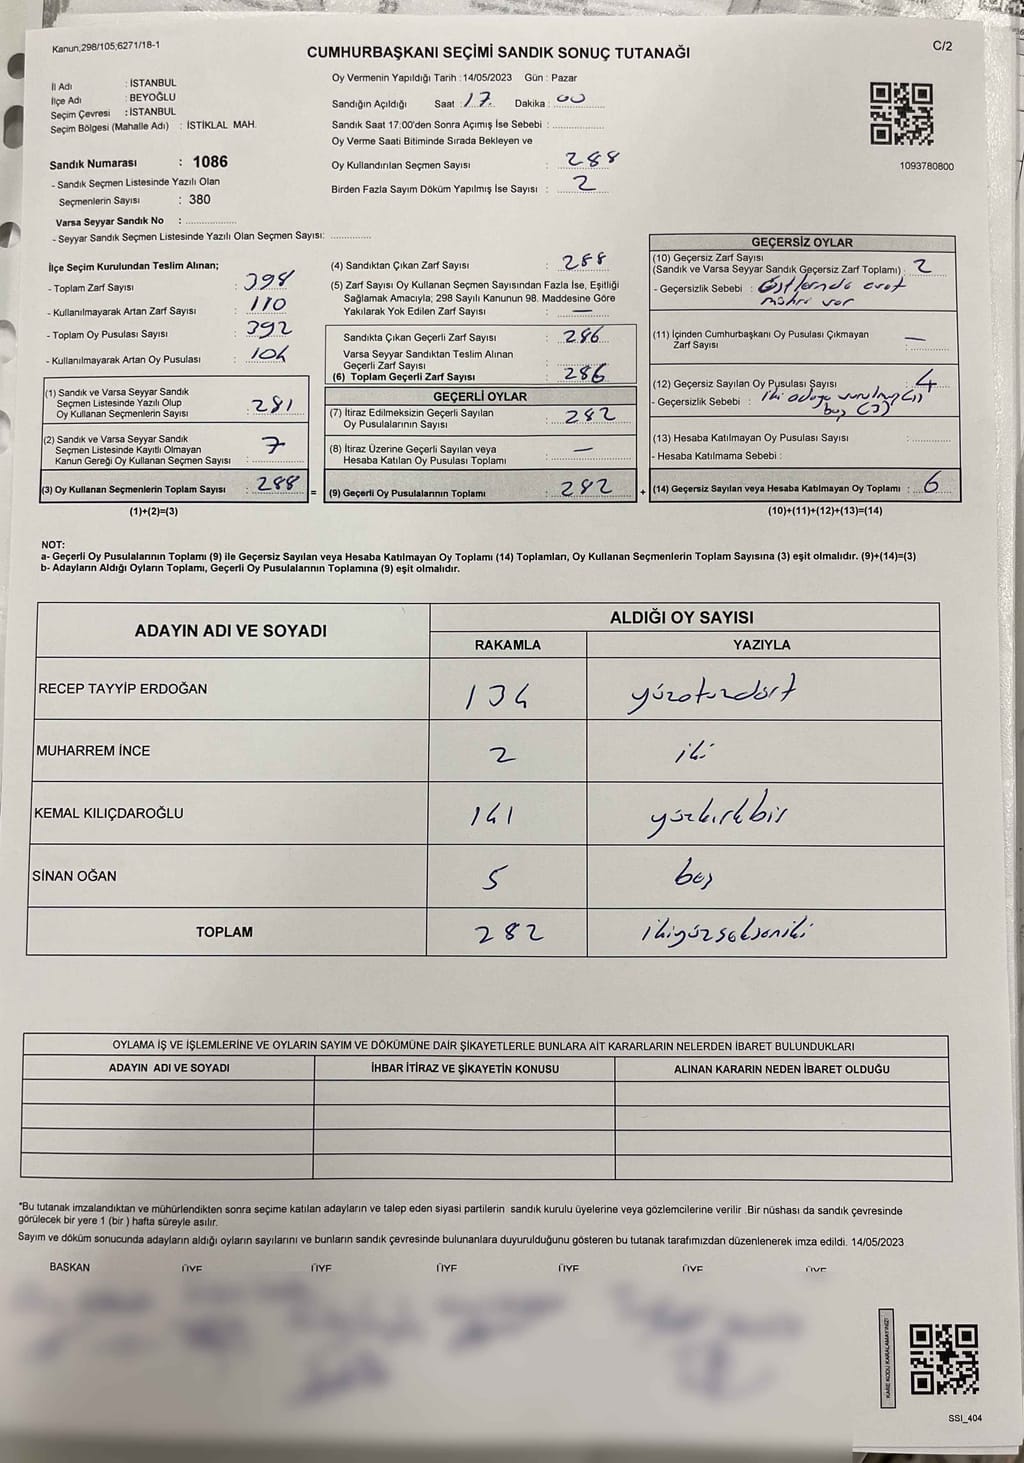 Kanun,298/105,6271/18-1
C/2
CUMHURBAŞKANI SEÇİMİ SANDIK SONUÇ TUTANAĞI
İl Adı : İSTANBUL
İlçe Adı : BEYOĞLU
Seçim Çevresi : İSTANBUL
Seçim Bölgesi (Mahalle Adı) : İSTİKLAL MAH.
Sandık Numarası : 1086
- Sandık Seçmen Listesinde Yazılı Olan
Seçmenlerin Sayısı : 380
Varsa Seyyar Sandık No :
- Seyyar Sandık Seçmen Listesinde Yazılı Olan Seçmen Sayısı:
Oy Vermenin Yapıldığı Tarih : 14/05/2023 Gün : Pazar
Sandığın Açıldığı Saat : 17 Dakika : 00
Sandık Saat 17:00'den Sonra Açımış İse Sebebi :
Oy Verme Saati Bitiminde Sırada Bekleyen ve
Oy Kullandırılan Seçmen Sayısı : 288
Birden Fazla Sayım Döküm Yapılmış İse Sayısı : 2
1093780800
İlçe Seçim Kurulundan Teslim Alınan;
- Toplam Zarf Sayısı : 398
- Kullanılmayarak Artan Zarf Sayısı : 110
- Toplam Oy Pusulası Sayısı : 392
- Kullanılmayarak Artan Oy Pusulası : 104
(1) Sandık ve Varsa Seyyar Sandık
Seçmen Listesinde Yazılı Olup
Oy Kullanan Seçmenlerin Sayısı : 281
(2) Sandık ve Varsa Seyyar Sandık
Seçmen Listesinde Kayıtlı Olmayan
Kanun Gereği Oy Kullanan Seçmen Sayısı : 7
(3) Oy Kullanan Seçmenlerin Toplam Sayısı : 288 =
(1)+(2)=(3)
(4) Sandıktan Çıkan Zarf Sayısı : 288
(5) Zarf Sayısı Oy Kullanan Seçmen Sayısından Fazla İse, Eşitliği
Sağlamak Amacıyla; 298 Sayılı Kanunun 98. Maddesine Göre
Yakılarak Yok Edilen Zarf Sayısı : —
Sandıkta Çıkan Geçerli Zarf Sayısı : 286
Varsa Seyyar Sandıktan Teslim Alınan
Geçerli Zarf Sayısı :
(6) Toplam Geçerli Zarf Sayısı : 286
GEÇERLİ OYLAR
(7) İtiraz Edilmeksizin Geçerli Sayılan
Oy Pusulalarının Sayısı : 282
(8) İtiraz Üzerine Geçerli Sayılan veya
Hesaba Katılan Oy Pusulası Toplamı : —
(9) Geçerli Oy Pusulalarının Toplamı : 282 +
GEÇERSİZ OYLAR
(10) Geçersiz Zarf Sayısı
(Sandık ve Varsa Seyyar Sandık Geçersiz Zarf Toplamı) : 2
- Geçersizlik Sebebi : Üstlerinde evet
mührü var
(11) İçinden Cumhurbaşkanı Oy Pusulası Çıkmayan
Zarf Sayısı : —
(12) Geçersiz Sayılan Oy Pusulası Sayısı : 4
- Geçersizlik Sebebi : iki adaya vurulmuş (1)
boş (3)
(13) Hesaba Katılmayan Oy Pusulası Sayısı :
- Hesaba Katılmama Sebebi :
(14) Geçersiz Sayılan veya Hesaba Katılmayan Oy Toplamı : 6
(10)+(11)+(12)+(13)=(14)
NOT:
a- Geçerli Oy Pusulalarının Toplamı (9) ile Geçersiz Sayılan veya Hesaba Katılmayan Oy Toplamı (14) Toplamları, Oy Kullanan Seçmenlerin Toplam Sayısına (3) eşit olmalıdır. (9)+(14)=(3)
b- Adayların Aldığı Oyların Toplamı, Geçerli Oy Pusulalarının Toplamına (9) eşit olmalıdır.
ADAYIN ADI VE SOYADI ALDIĞI OY SAYISI
RAKAMLA YAZIYLA
RECEP TAYYİP ERDOĞAN 134 yüzotuzdört
MUHARREM İNCE 2 iki
KEMAL KILIÇDAROĞLU 141 yüzkırkbir
SİNAN OĞAN 5 beş
TOPLAM 282 ikiyüzsekseniki
OYLAMA İŞ VE İŞLEMLERİNE VE OYLARIN SAYIM VE DÖKÜMÜNE DAİR ŞİKAYETLERLE BUNLARA AİT KARARLARIN NELERDEN İBARET BULUNDUKLARI
ADAYIN ADI VE SOYADI İHBAR İTİRAZ VE ŞİKAYETİN KONUSU ALINAN KARARIN NEDEN İBARET OLDUĞU
*Bu tutanak imzalandıktan ve mühürlendikten sonra seçime katılan adayların ve talep eden siyasi partilerin sandık kurulu üyelerine veya gözlemcilerine verilir .Bir nüshası da sandık çevresinde
görülecek bir yere 1 (bir ) hafta süreyle asılır.
Sayım ve döküm sonucunda adayların aldığı oyların sayılarını ve bunların sandık çevresinde bulunanlara duyurulduğunu gösteren bu tutanak tarafımızdan düzenlenerek imza edildi. 14/05/2023
BAŞKAN ÜYE ÜYE ÜYE ÜYE ÜYE ÜYE
KARE KODU KARALAMAYINIZ!
SSI_404